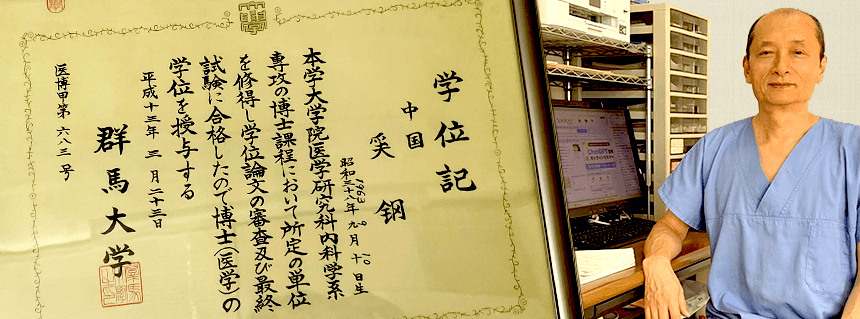 学位記
中国
奚 钢
1963
昭和三十八年九月十日生
本学大学院医学研究科内科学系
専攻の博士課程において所定の単位
を修得し学位論文の審査及び最終
試験に合格したので、博士(医学)の
学位を授与する
平成十三年三月二十三日
群馬大学
医博甲第六八三号
ChatGPT